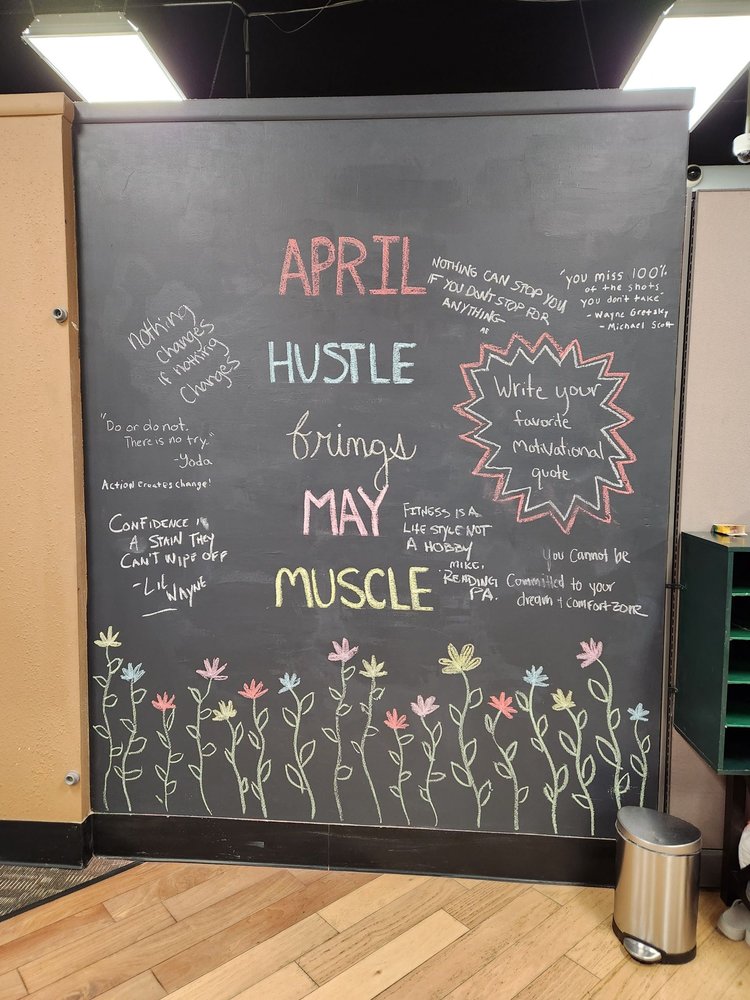 APRIL
HUSTLE
brings
MAY
MUSCLE
NOTHING CAN STOP YOU
IF YOU DON'T STOP FOR
ANYTHING
"you miss 100%
of the shots
you don't take"
- Wayne Gretsky
- Michael Scott
nothing
changes
if nothing
changes
Write your
favorite
Motivational
quote
"Do or do not.
There is no try."
-Yoda
Action creates change!
CONFIDENCE IS
A STAIN THEY
CAN'T WIPE OFF
- LIL
WAYNE
FITNESS IS A
LIFE STYLE NOT
A HOBBY
MIKE,
READING
PA.
You Cannot be
Committed to your
dream + comfort zone